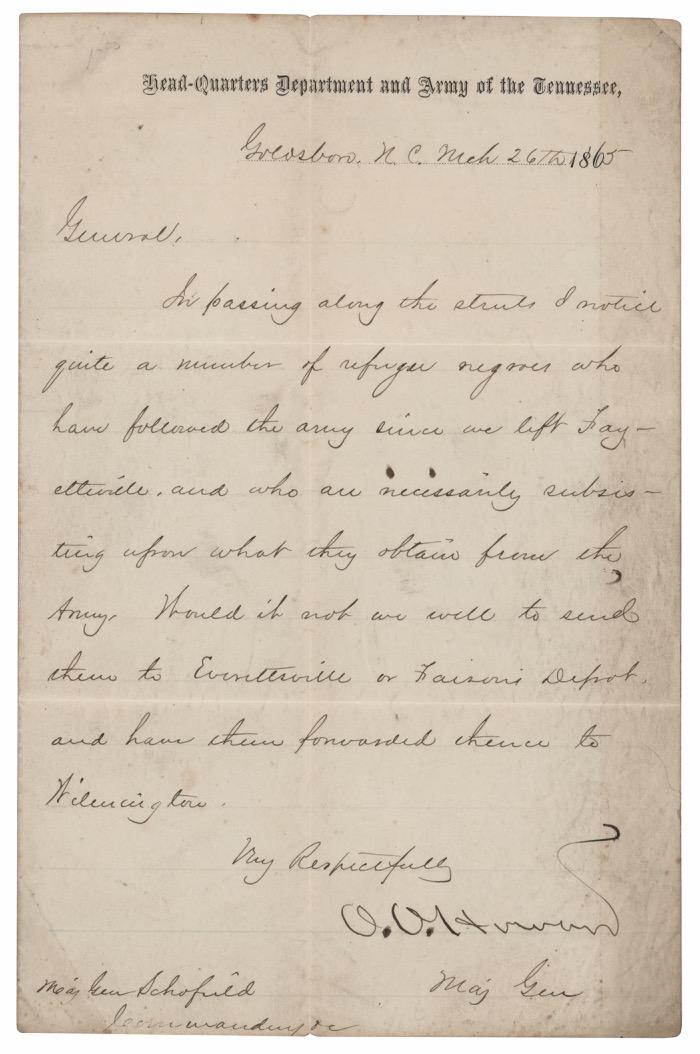 Head-Quarters Department and Army of the Tennessee,
Goldsboro. N. C. Mch 26th 1865
General,
In passing along the streets I notice
quite a number of refugee negroes who
have followed the army since we left Fay-
etteville, and who are necessarily subsis-
ting upon what they obtain from the
Army. Would it not we well to send
them to Everettsville or Faison's Depot,
and have them forwarded thence to
Wilmington.
Very Respectfully
O. O. Howard
Maj Gen
Maj Gen Schofield
Commanding &c